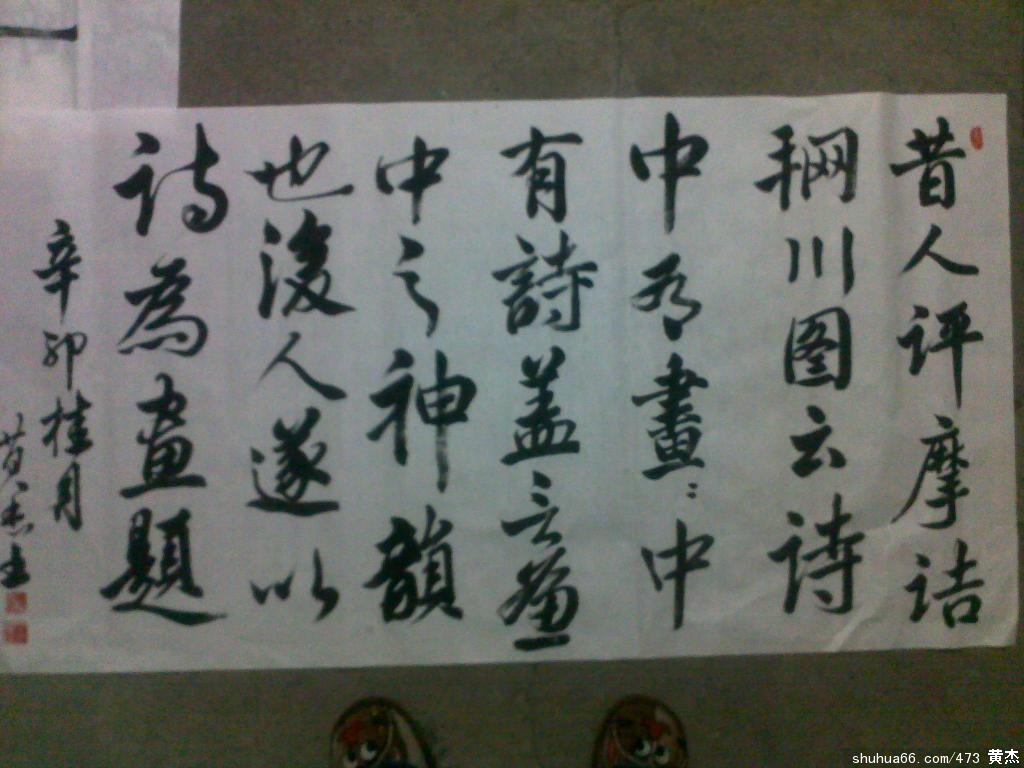 昔人评摩诘
辋川图云诗
中有畫:中
有詩盖言畫
中之神韻
也後人遂以
诗為畫題
辛卯桂月
黄杰
shuhua66.com/473 黄杰